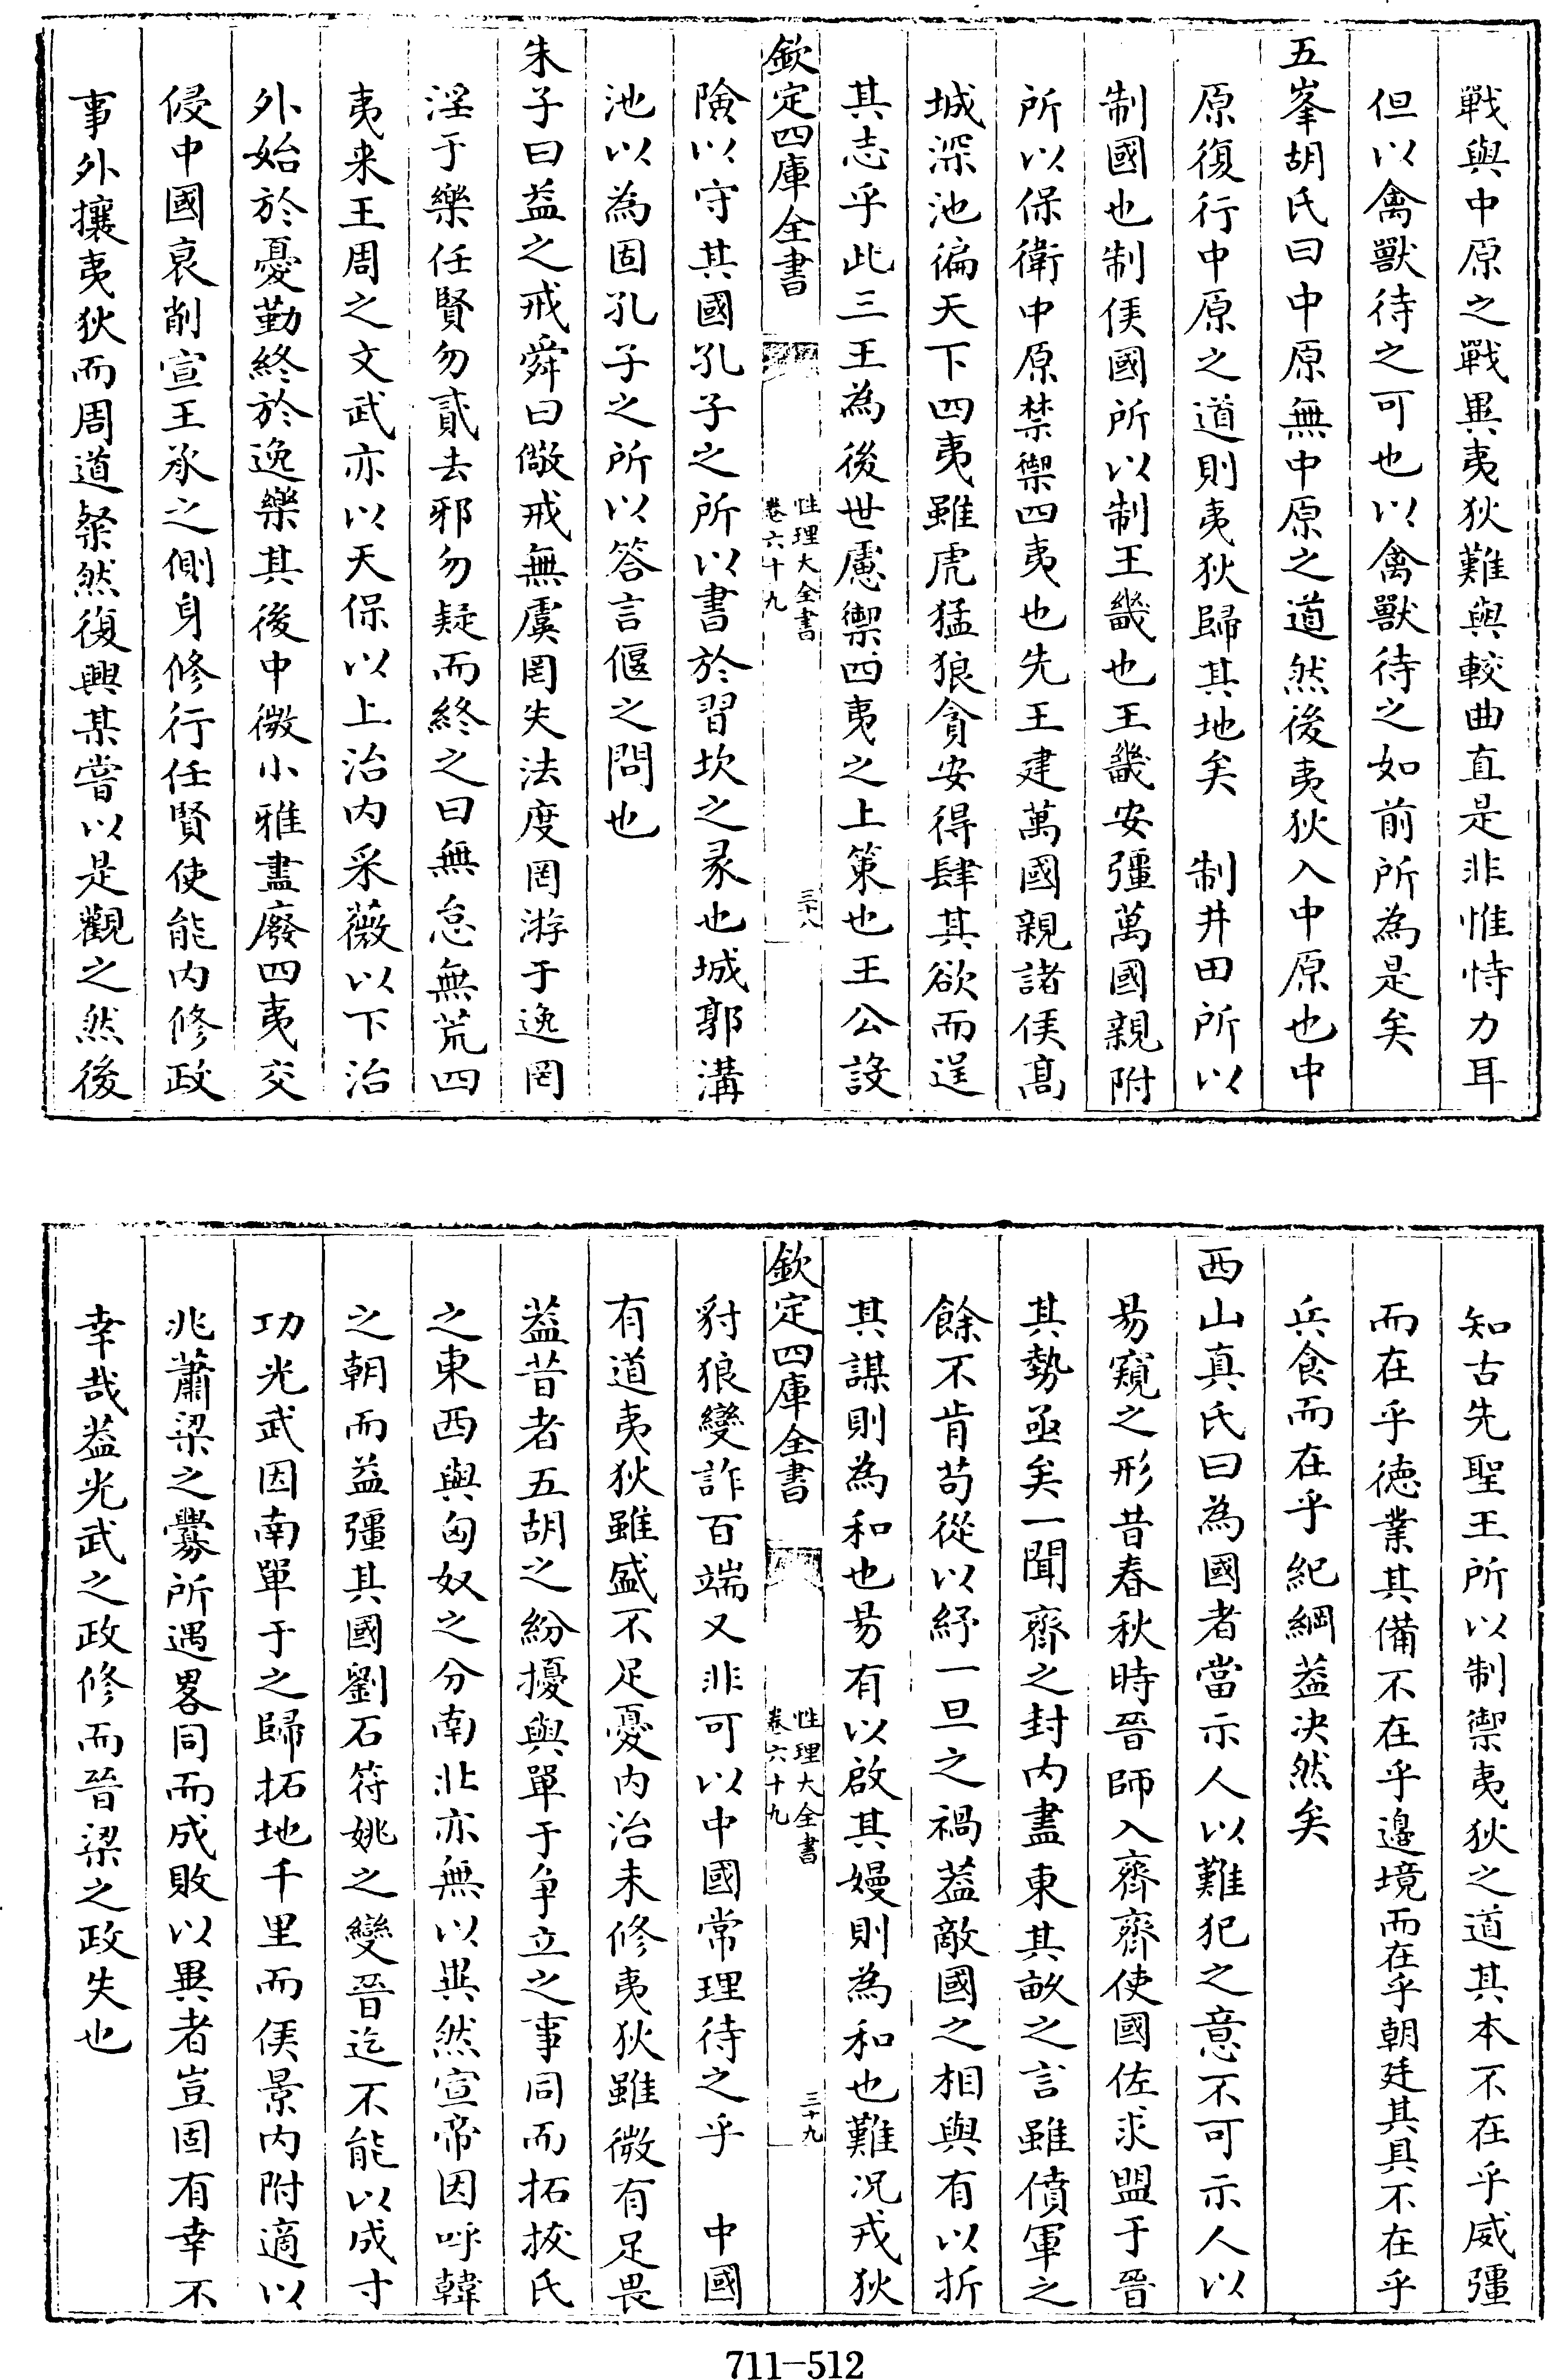 戰與中原之戰異夷狄難與較曲直是非惟恃力耳
但以禽獸待之可也以禽獸待之如前所為是矣
五峯胡氏曰中原無中原之道然後夷狄入中原也中
原復行中原之道則夷狄歸其地矣　制井田所以
制國也制侯國所以制王畿也王畿安彊萬國親附
所以保衛中原禁禦四夷也先王建萬國親諸侯髙
城深池徧天下四夷雖虎猛狼貪安得肆其欲而逞
其志乎此三王為後世慮禦四夷之上策也王公設
欽定四庫全書
性理大全書
卷六十九
三十八
險以守其國孔子之所以書於習坎之彖也城郭溝
池以為固孔子之所以答言偃之問也
朱子曰益之戒舜曰儆戒無虞罔失法度罔游于逸罔
淫于樂任賢勿貳去邪勿疑而終之曰無怠無荒四
夷来王周之文武亦以天保以上治内采薇以下治
外始於憂勤終於逸樂其後中微小雅盡廢四夷交
侵中國衰削宣王承之側身修行任賢使能内修政
事外攘夷狄而周道粲然復興某嘗以是觀之然後
知古先聖王所以制禦夷狄之道其本不在乎威彊
而在乎德業其備不在乎邊境而在乎朝廷其具不在乎
兵食而在乎紀綱葢决然矣
西山真氏曰為國者當示人以難犯之意不可示人以
易窺之形昔春秋時晉師入齊齊使國佐求盟于晉
其勢亟矣一聞齊之封内盡東其畝之言雖僨軍之
餘不肯苟從以紓一旦之禍葢敵國之相與有以折
其謀則為和也易有以啟其嫚則為和也難况戎狄
欽定四庫全書
性理大全書
卷六十九
三十九
豺狼變詐百端又非可以中國常理待之乎　中國
有道夷狄雖盛不足憂内治未修夷狄雖微有足畏
葢昔者五胡之紛擾與單于争立之事同而拓拔氏
之東西與匈奴之分南北亦無以異然宣帝因呼韓
之朝而益彊其國劉石符姚之變晉迄不能以成寸
功光武因南單于之歸拓地千里而侯景内附適以
兆蕭梁之釁所遇畧同而成敗以異者豈固有幸不
幸哉葢光武之政修而晉梁之政失也
711—512